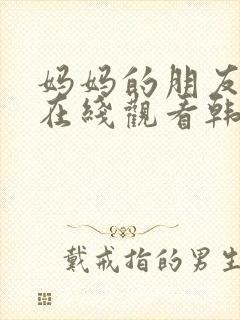 妈妈的朋友
在綫觀看韩
戴戒指的男生